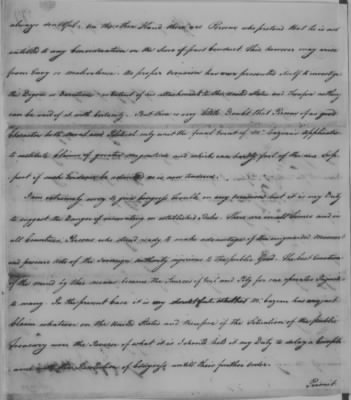 always doubtful. On the other Hand there are Persons who pretend that he is not
entitled to any Consideration on the Score of past Conduct. This however may arise
from Envy or malevolence. No proper occasion has ever presented itself to investigate
the Degree or Duration or extent of his Attachment to the United States and therefore nothing
can be said of it with Certainty. But there is very little Doubt that Persons of as good
Character both Moral and Political only wait the final Event of Mr. Cazeau's Application
to institute Claims of greater Magnitude and which can hardly fail of the same Sup-
port if such Evidence be admitted as is now tendered.
I am extremely sorry to give Congress trouble on any occasion but it is my Duty
to suggest the Danger of innovating on established Rules. There are in all Times and in
all Countries Persons who stand ready to make advantages of the unguarded Moment
and procure Acts of the Sovereign Authority injurious to the public Good. The best Emotions
of the mind by this means become the Sources of evil and Pity for one operates Injustice
to many. In the present Case it is very doubtful whether Mr. Cazeau has any just
Claim whatever on the United States and therefore if the Situation of the public
Treasury were the Reverse of what it is I should hold it my Duty to delay a Compli-
ance with the Resolution of Congress until their further order.
Permit